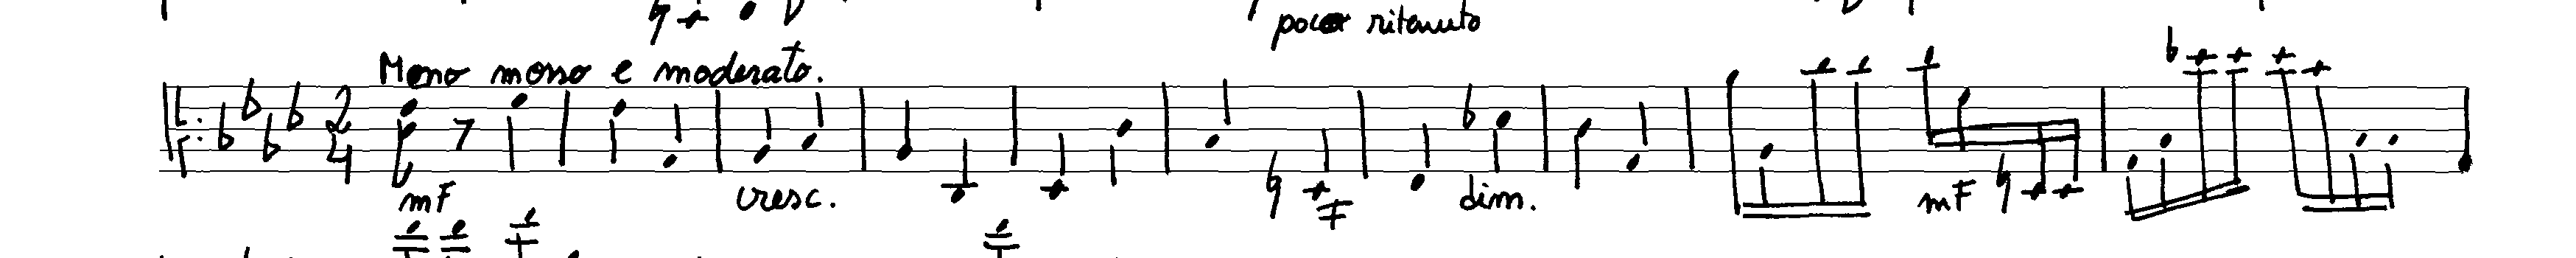 poco ritenuto
Meno mosso e moderato.
2
4
mF cresc. F dim. mF